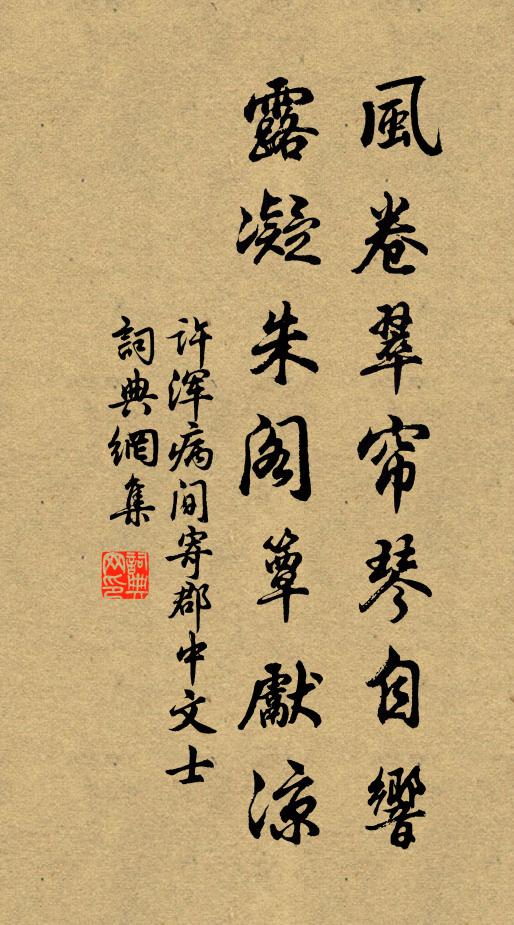 風卷翠帘琴自響
露凝朱阁簟獻涼
许浑病间寄郡中文士
詞典網集
詞典网印